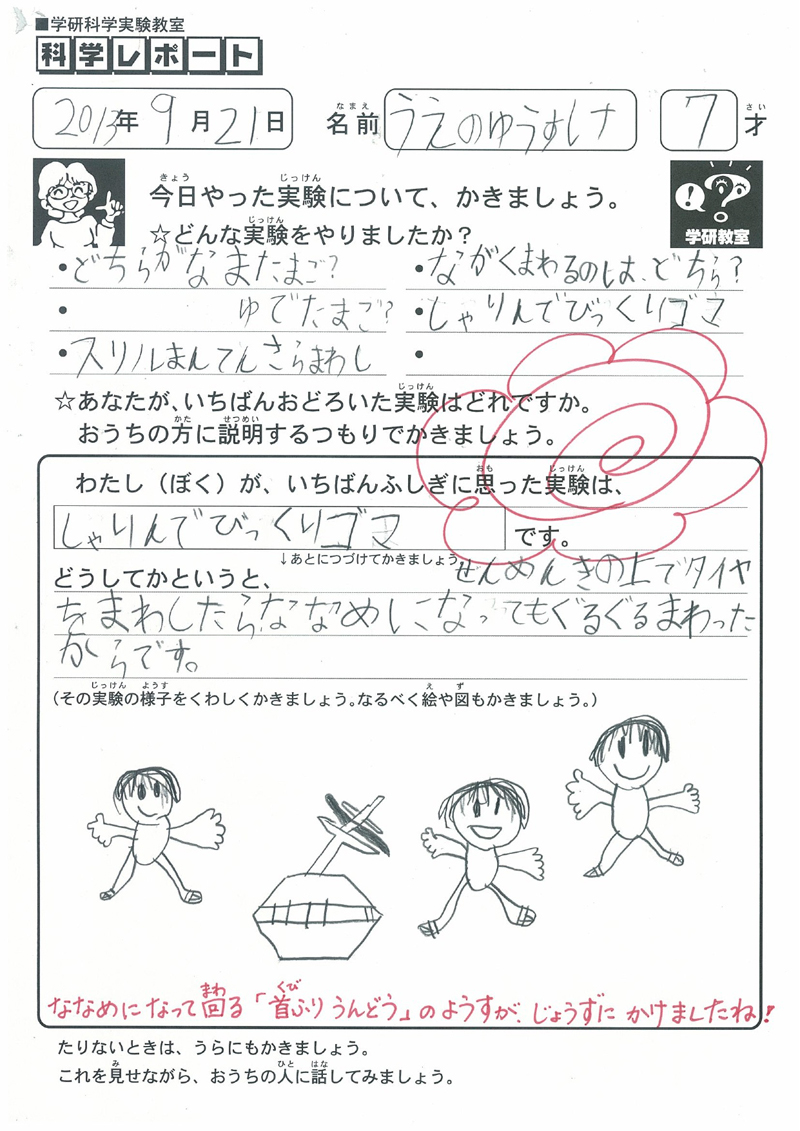 ■学研科学実験教室
科学レポート
2013年9月21日 名前 なまえ うえのゆうすけ 7才 さい
今日やった実験について、かきましょう。 きょう じっけん
学研教室
☆どんな実験をやりましたか? じっけん
・どちらがなまたまご?
・ながくまわるのは、どちら?
・ ゆでたまご?
・しゃりんでびっくりゴマ
・スリルまんてんさらまわし
・
☆あなたが、いちばんおどろいた実験はどれですか。 じっけん
おうちの方に説明するつもりでかきましょう。 かた せつめい
わたし(ぼく)が、いちばんふしぎに思った実験は、 おも じっけん
しゃりんでびっくりゴマ です。
↓あとにつづけてかきましょう。
どうしてかというと、 ぜんめんきの上でタイヤ
をまわしたら、ななめになってもぐるぐるまわった
からです。
(その実験の様子をくわしくかきましょう。なるべく絵や図もかきましょう。) じっけん ようす え ず
ななめになって回る「首ふりうんどう」のようすが、じょうずにかけましたね! まわ くび
たりないときは、うらにもかきましょう。
これを見せながら、おうちの人に話してみましょう。 み ひと はな